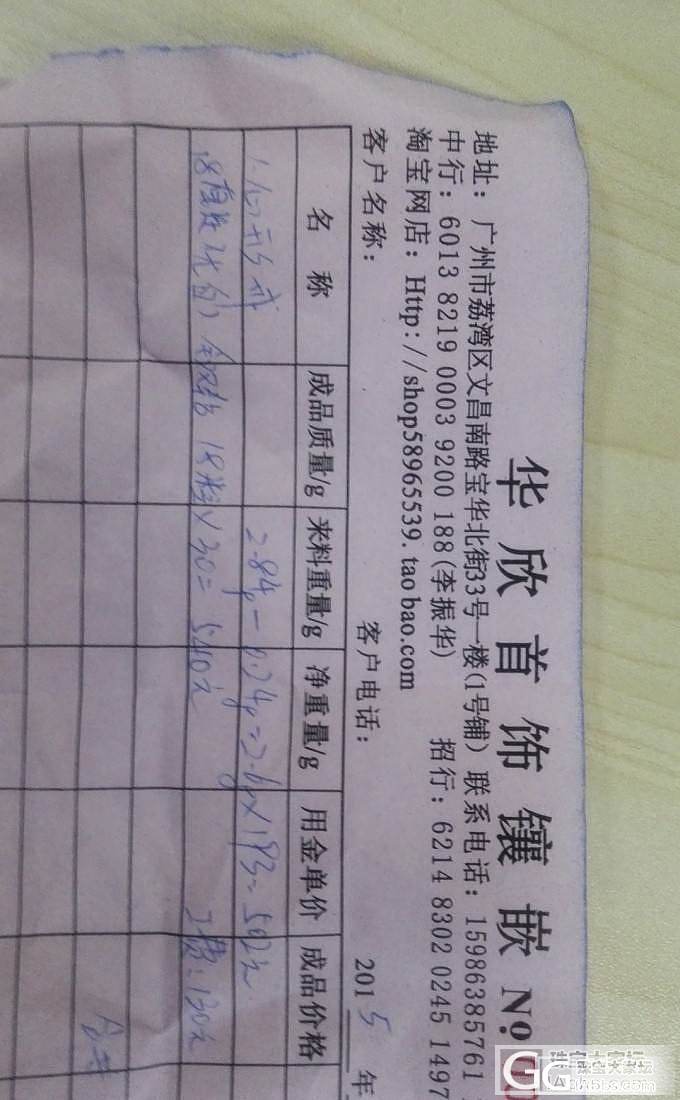 华欣首饰镶嵌 №
地址：广州市荔湾区文昌南路宝华北街33号一楼(1号铺) 联系电话：15986385761
中行：6013 8219 0003 9200 188(李振华) 招行：6214 8302 0245 1497
淘宝网店：Http://shop58965539.taobao.com
客户名称： 客户电话： 2015年
名称 成品质量/g 来料重量/g 净重量/g 用金单价 成品价格
2.84g-0.24g=2.6g×193=502元
18粒×30=540元 工费：130元
合共